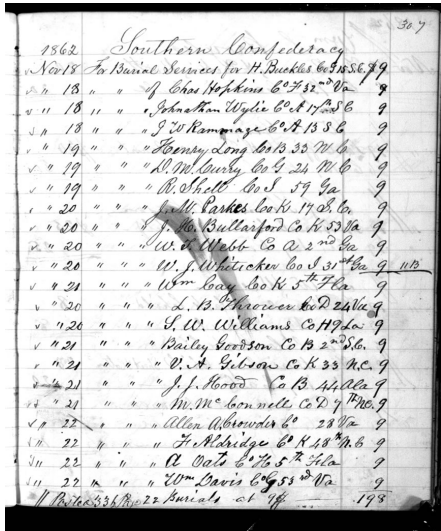 307
1862 Southern Confederacy
v Nov 18 For Burial Services for H. Buckles Co G 15 S.C. $ 9
v " 18 " " " of Chas Hopkins Co F 32nd Va 9
v " 18 " " " Johnathan Wylie Co A 17th S C 9
v " 18 " " " J W Rammage Co A 13 S C 9
v " 19 " " " Henry Long Co B 33 N C 9
v " 19 " " " D. M. Curry Co G 24 N C 9
v " 19 " " " R. Shell Co I 59 Ga 9
v " 20 " " " J. M. Parkes Co K 17 S. C. 9
v " 20 " " " J. H. Bullarford Co K 53 Va 9
v " 20 " " " W. F Webb Co A 2nd Ga 9
v " 20 " " " W. J. Whiticker Co I 31st Ga 9
v " 21 " " " Wm Cay Co K 5th Fla 9
v " 20 " " " L. B. Thrower Co D 24 Va 9
v " 20 " " " S. W. Williams Co H 9 La 9
v " 21 " " " Bailey Goodson Co B 2nd S.C. 9
v " 21 " " " V. A. Gibson Co K 33 N.C. 9
v " 21 " " " J. J. Hood Co B 44 Ala 9
v " 21 " " " M. McConnell Co D 7th N.C. 9
v " 22 " " " Allen A. Crowder Co 28 Va 9
v " 22 " " " F Aldridge Co K 48th N. C 9
v " 22 " " " A Oats Co H 5th Fla 9
v " 22 " " " Wm Davis Co G 53rd Va 9
Posted 336 Page 22 Burials at 9 198